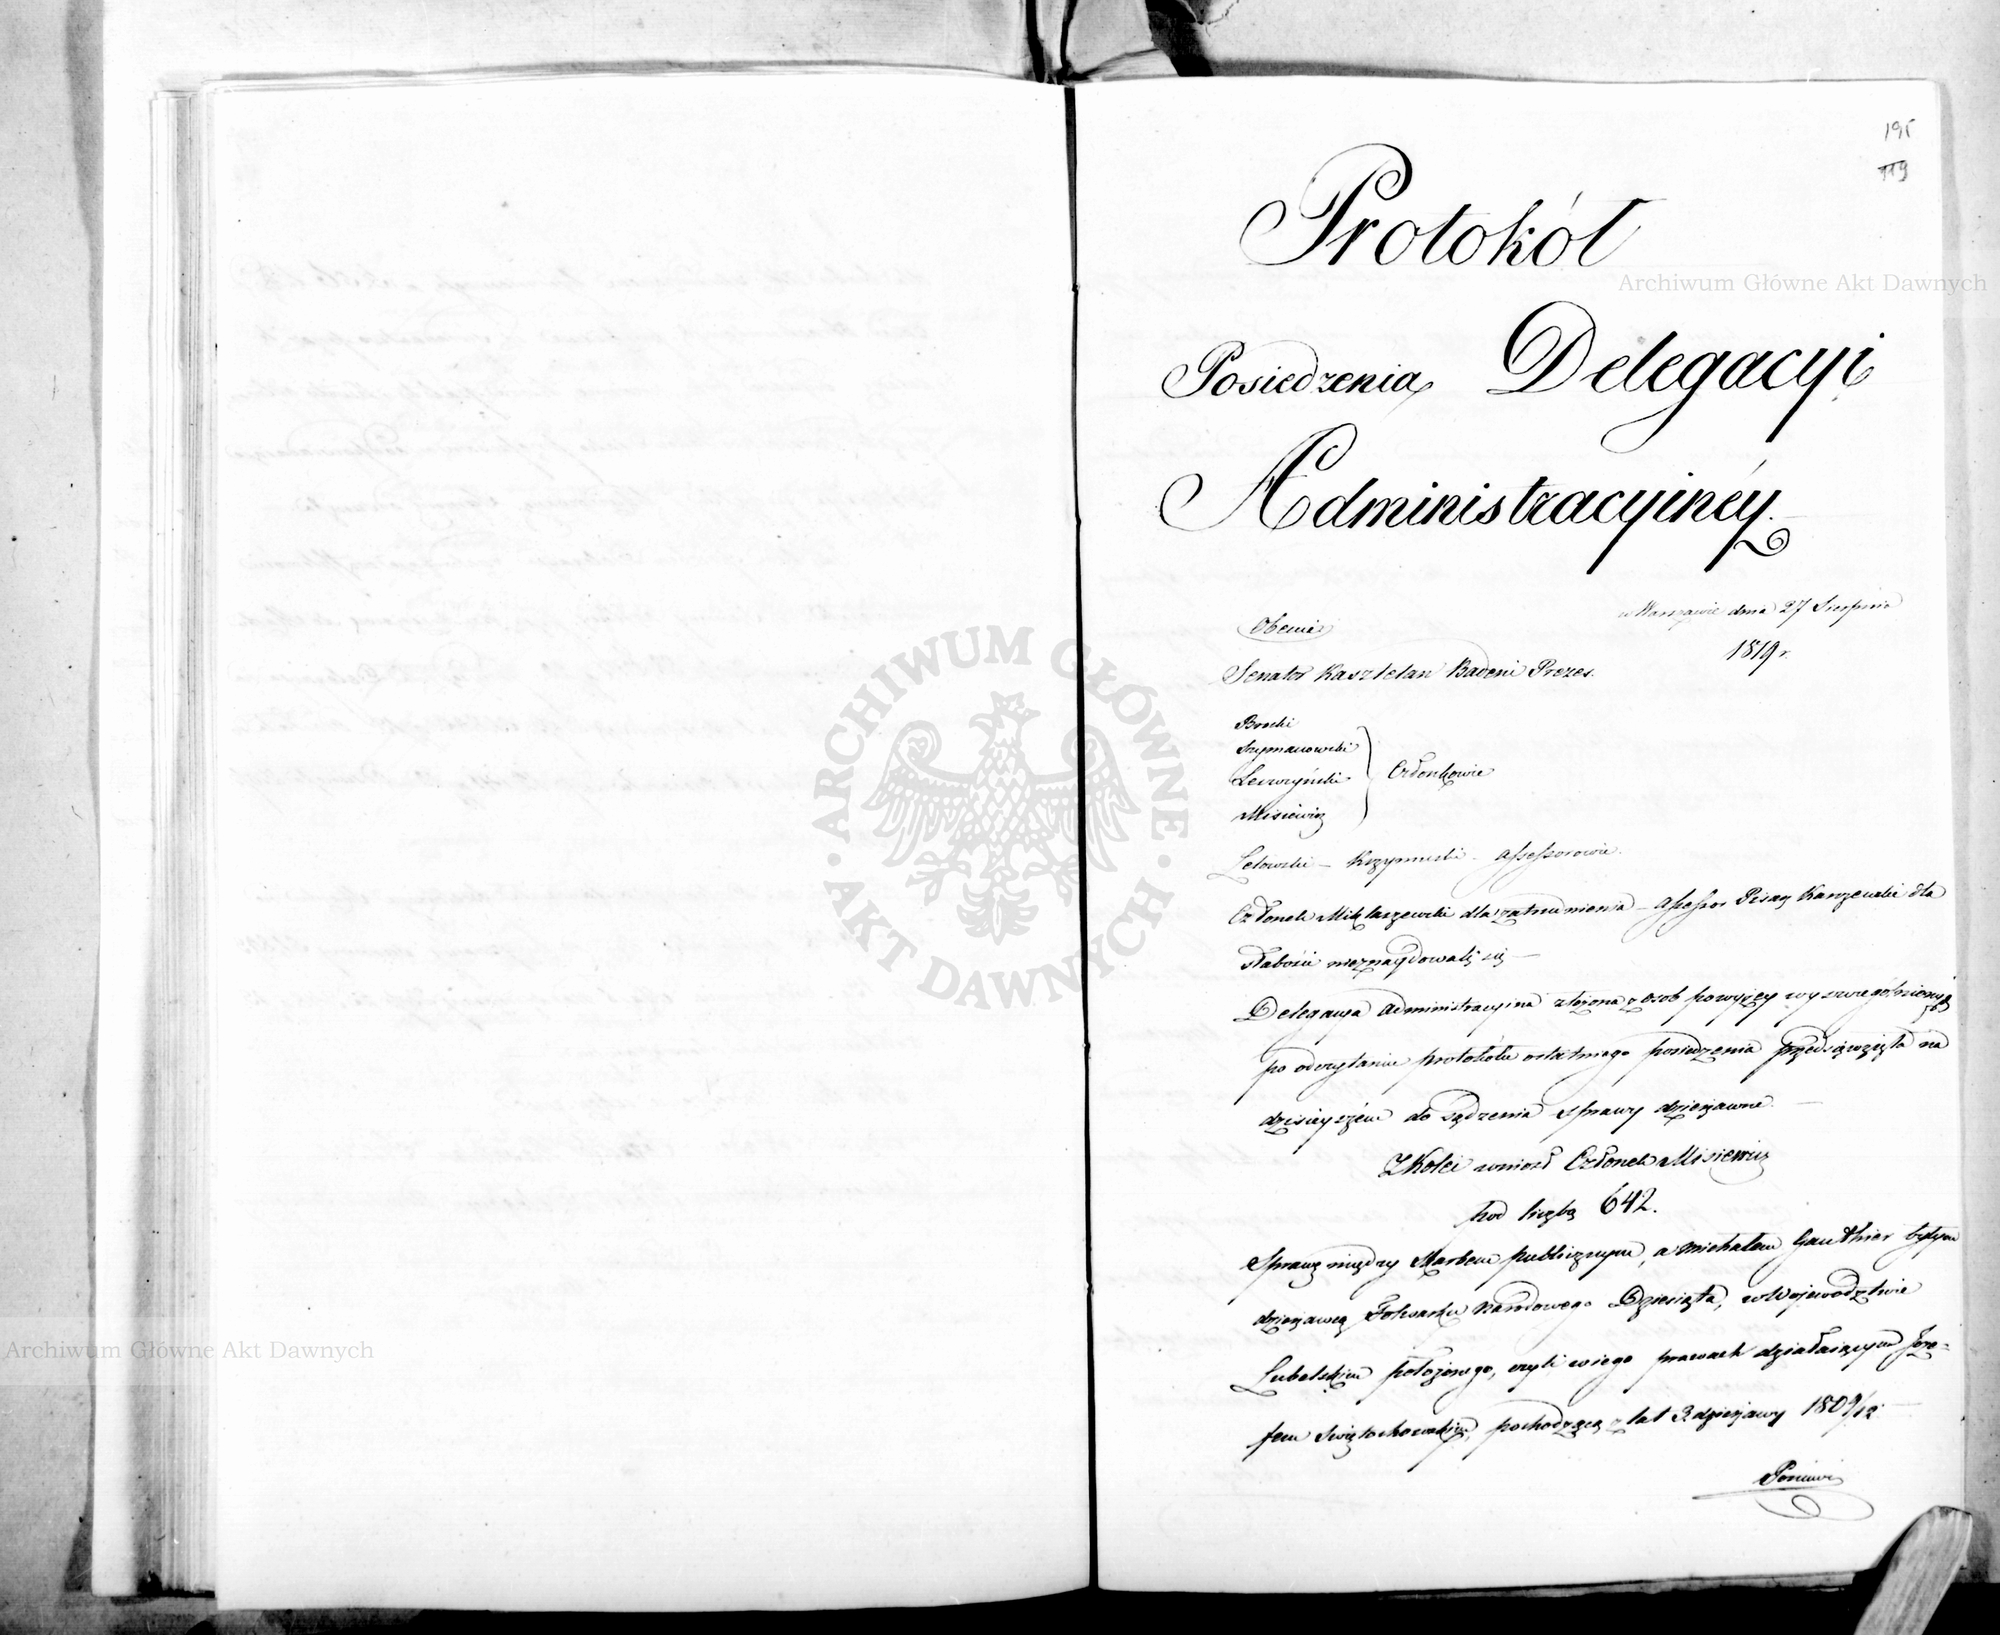 195
119
Protokół
Posiedzenia Delegacyi
Administracyinéy.
w Warszawie dnia 27 Sierpnia
1819 r.
Obecni
Senator Kasztelan Badeni Prezes.
Brocki
Szymanowski
Leszczyński
Misiewicz
Członkowie
Letowski – Krzymuski – Assessorowie.
Członek Miklaszewski dla zatrudnienia – Assessor Pisarz Karczewski dla
słabości nieznaydowali się –
Delegacya Administracyina złożona z osób powyżey wyszczególnionych
po odczytaniu protokółu ostatniego posiedzenia przedsięwzięła na
dzisieyszém do sądzenia sprawy dzierżawne. –
Z Kolei wniósł Członek Misiewicz
pod liczbą 642.
Sprawę między Skarbem publicznym, a Michałem Gauthier byłym
dzierżawcą Folwarku Narodowego Dziesiąta, w Województwie
Lubelskim położonego, czyli w iego prawach działaiącym Józe=
fem Świętochowskim, pochodzącą z lat 3. dzierżawy 1809/12. –
Ponieważ
Archiwum Główne Akt Dawnych
ARCHIWUM GŁÓWNE · AKT DAWNYCH ·
Archiwum Główne Akt Dawnych